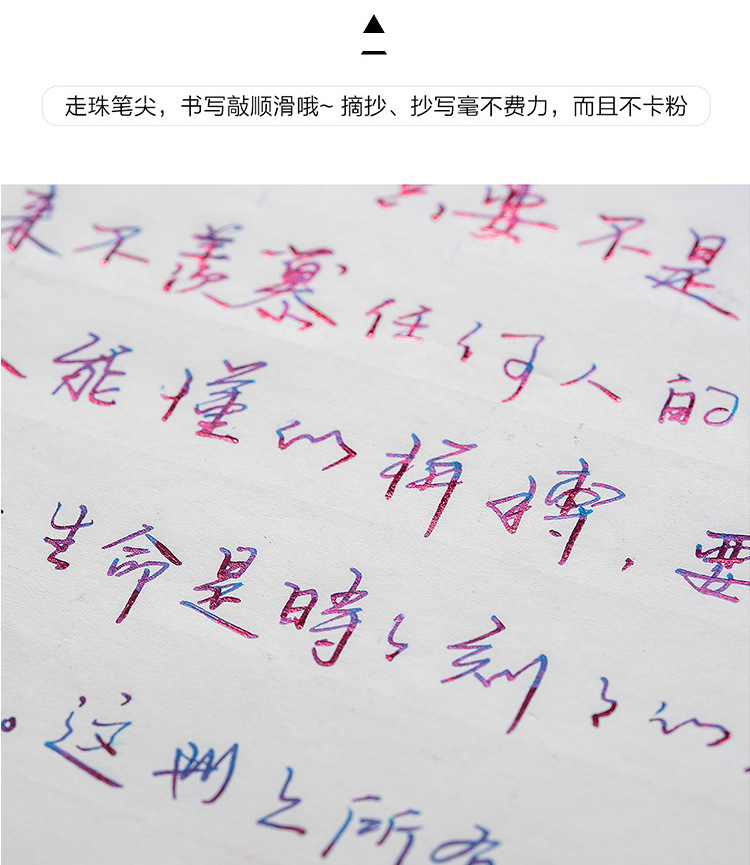 走珠笔尖，书写敲顺滑哦~ 摘抄、抄写毫不费力，而且不卡粉
要不是
来不羡慕任何人的
人能懂的拼搏，要
生命是時々刻々的
。这所有